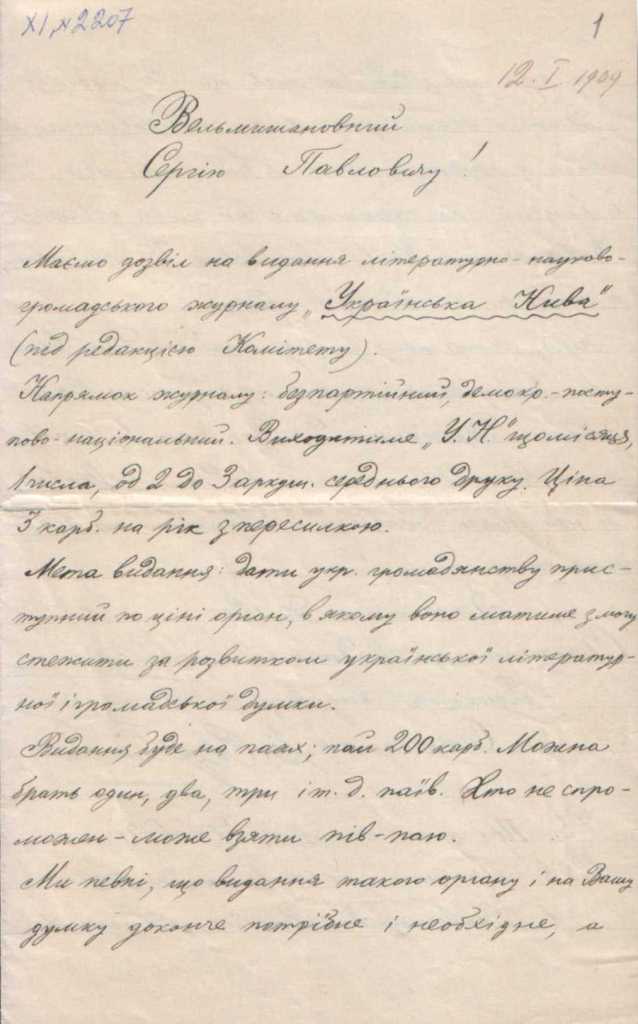 XI, № 2207
1
12. I 1909
Вельмишановний
Сергію Павловичу!
Маємо дозвіл на видання літературно-науково-
громадського журналу „Українська Нива"
(під редакцією Комітету).
Напрямок журналу: безпартійний, демокр.-посту-
пово-національний. Виходитиме „У.Н." щомісяця,
1 числа, од 2 до 3 аркуш. середнього друку. Ціна
3 карб. на рік з пересилкою.
Мета видання: дати укр. громадянству прис-
тупний по ціні орган, в якому воно матиме змогу
стежити за розвитком української літератур-
ної і громадської думки.
Видання буде на паях; пай 200 карб. Можна
брать один, два, три і т. д. паїв. Хто не спро-
можен – може взяти пів-паю.
Ми певні, що видання такого органу і на Вашу
думку доконче потрібне і необхідне, а